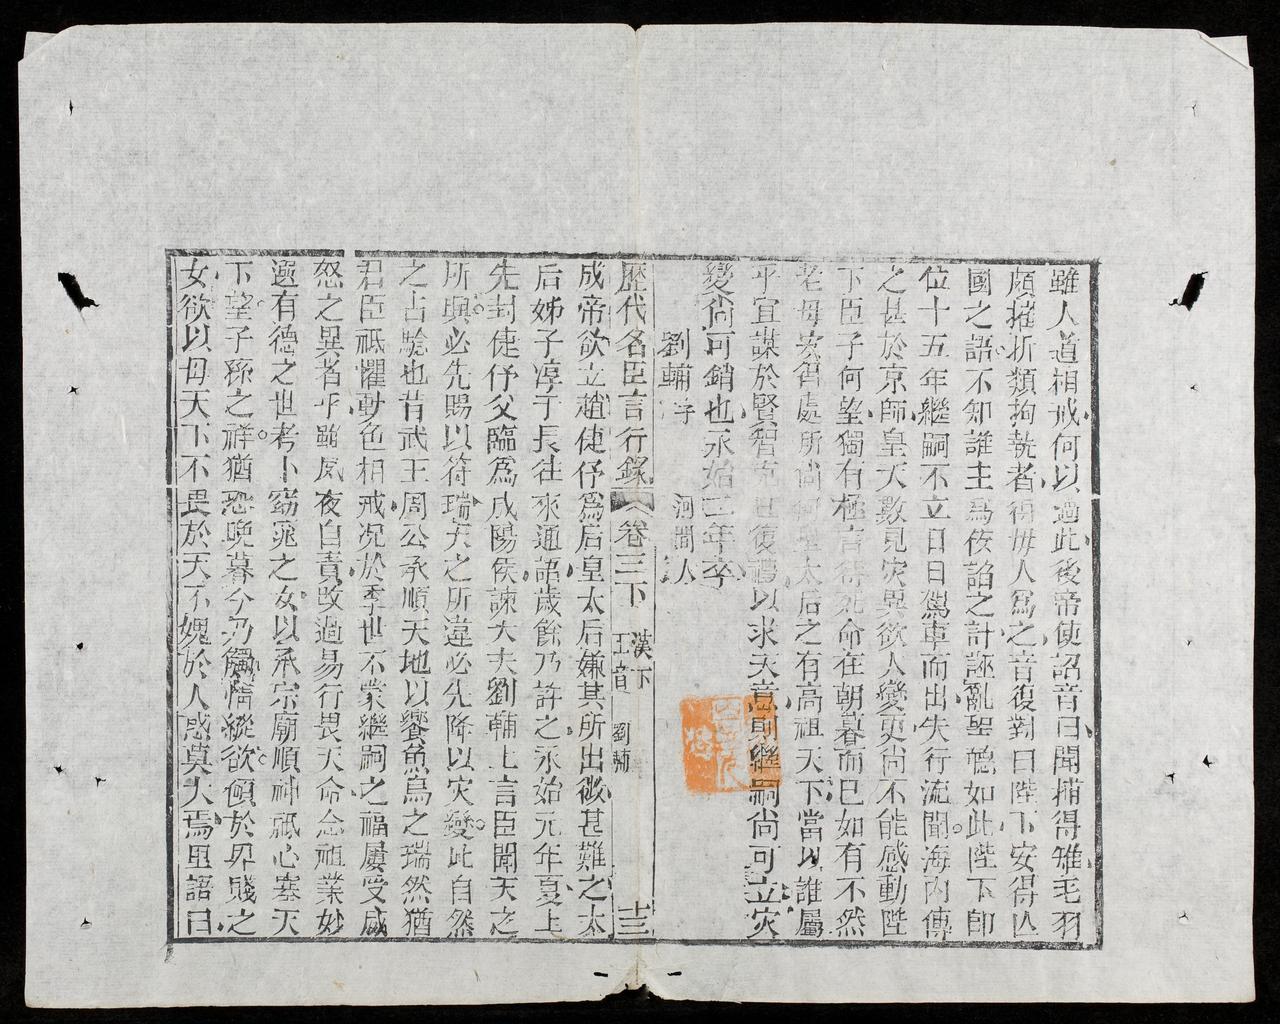 雖人道相戒何以過此後帝使詔音曰聞捕得雉毛羽
頗摧折類拘執者得毋人爲之音復對曰陛下安得亾
國之語不知誰主爲佞諂之計誣亂聖聽如此陛下卽
位十五年繼嗣不立日日駕車而出失行流聞海內傳
之甚於京師皇天數見灾異欲人變更尙不能感動陛
下臣子何望獨有極言待死命在朝暮而已如有不然
老母安得處所尙何皇太后之有高祖天下當以誰屬
乎宜謀於賢智克己復禮以求天意則繼嗣尙可立灾
變尙可銷也永始二年卒
劉輔字 河間人
歷代名臣言行錄 卷三下 漢下 王音 劉輔 十三
成帝欲立趙倢伃爲后皇太后嫌其所出微甚難之太
后姊子淳于長往來通語歲餘乃許之永始元年夏上
先封倢伃父臨爲成陽侯諫大夫劉輔上言臣聞天之
所興必先賜以符瑞天之所違必先降以灾變此自然
之占驗也昔武王周公承順天地以饗魚烏之瑞然猶
君臣祗懼動色相戒况於季世不蒙繼嗣之福屢受威
怒之異者乎雖夙夜自責改過易行畏天命念祖業妙
選有德之世考卜窈窕之女以承宗廟順神祇心塞天
下望子孫之祥猶恐晚暮今乃觸情縱欲傾於卑賤之
女欲以母天下不畏於天不媿於人惑莫大焉里語曰